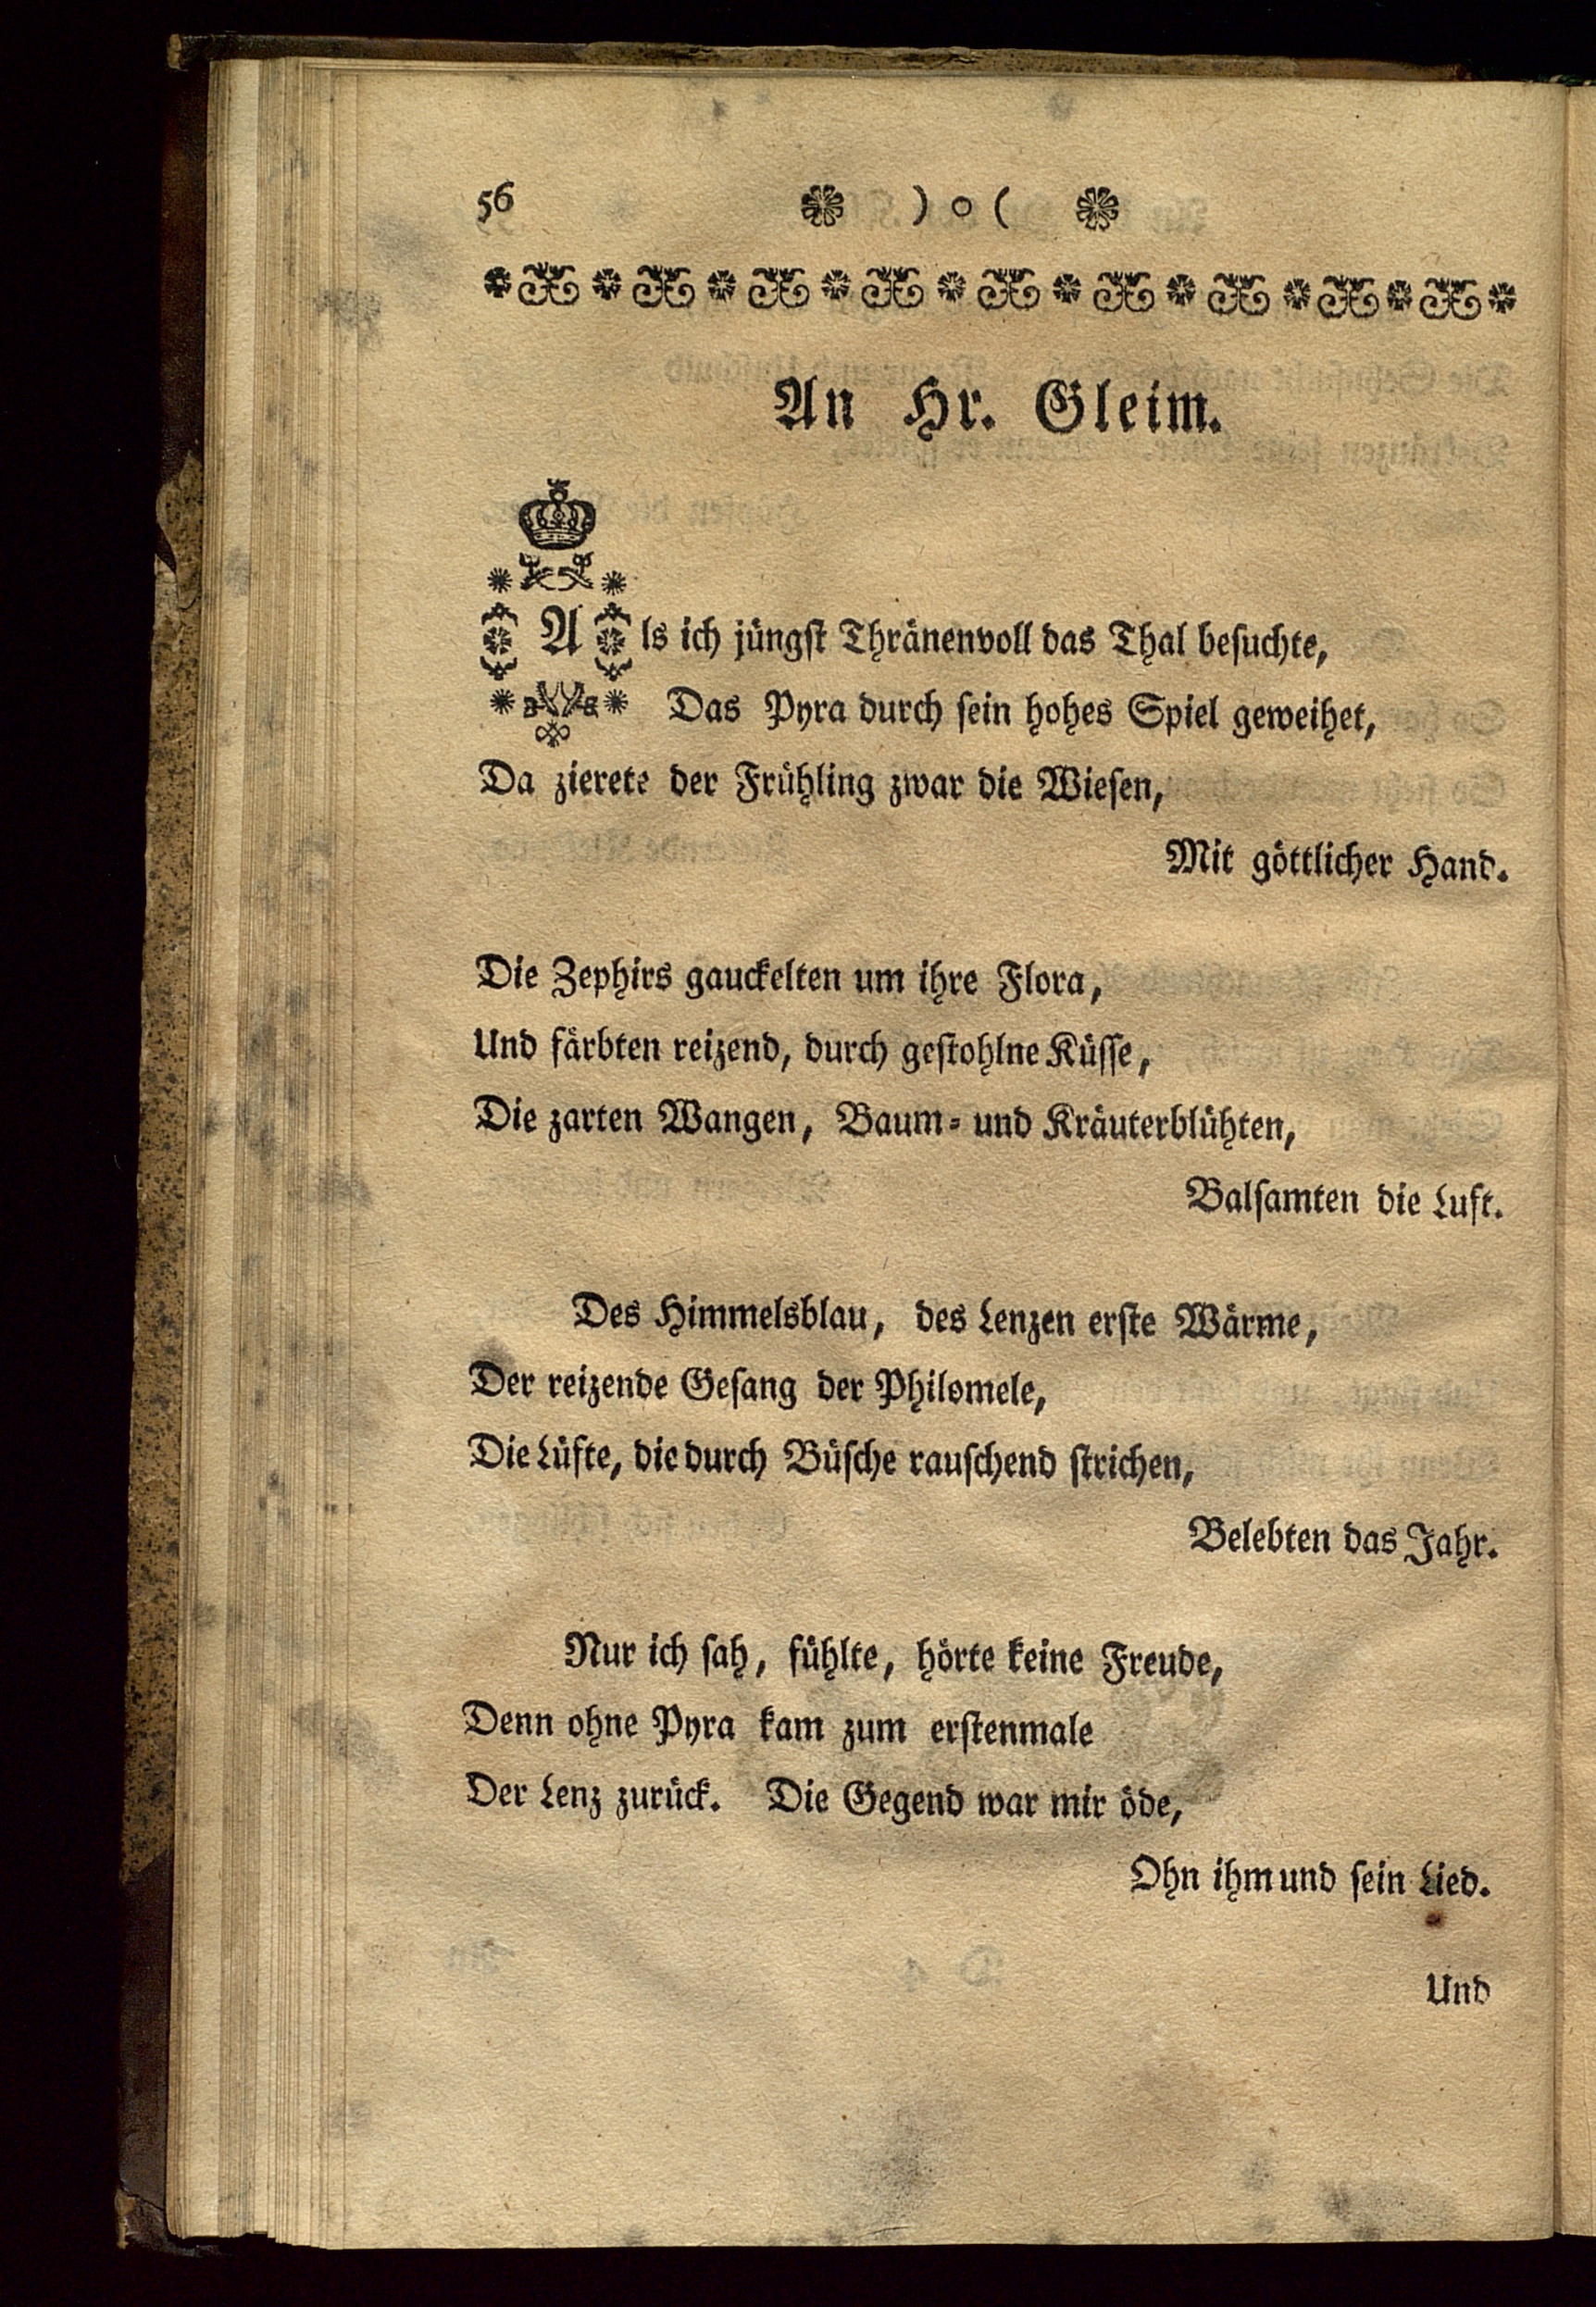 56 ) o (
An Hr. Gleim.
Als ich jüngſt Thränenvoll das Thal beſuchte,
Das Pyra durch ſein hohes Spiel geweihet,
Da zierete der Frühling zwar die Wieſen,
Mit göttlicher Hand.
Die Zephirs gauckelten um ihre Flora,
Und färbten reizend, durch geſtohlne Küſſe,
Die zarten Wangen, Baum- und Kräuterblühten,
Balſamten die Luft.
Des Himmelsblau, des Lenzen erſte Wärme,
Der reizende Geſang der Philomele,
Die Lüfte, die durch Büſche rauſchend ſtrichen,
Belebten das Jahr.
Nur ich ſah, fühlte, hörte keine Freude,
Denn ohne Pyra kam zum erſtenmale
Der Lenz zurück. Die Gegend war mir öde,
Ohn ihm und ſein Lied.
Und